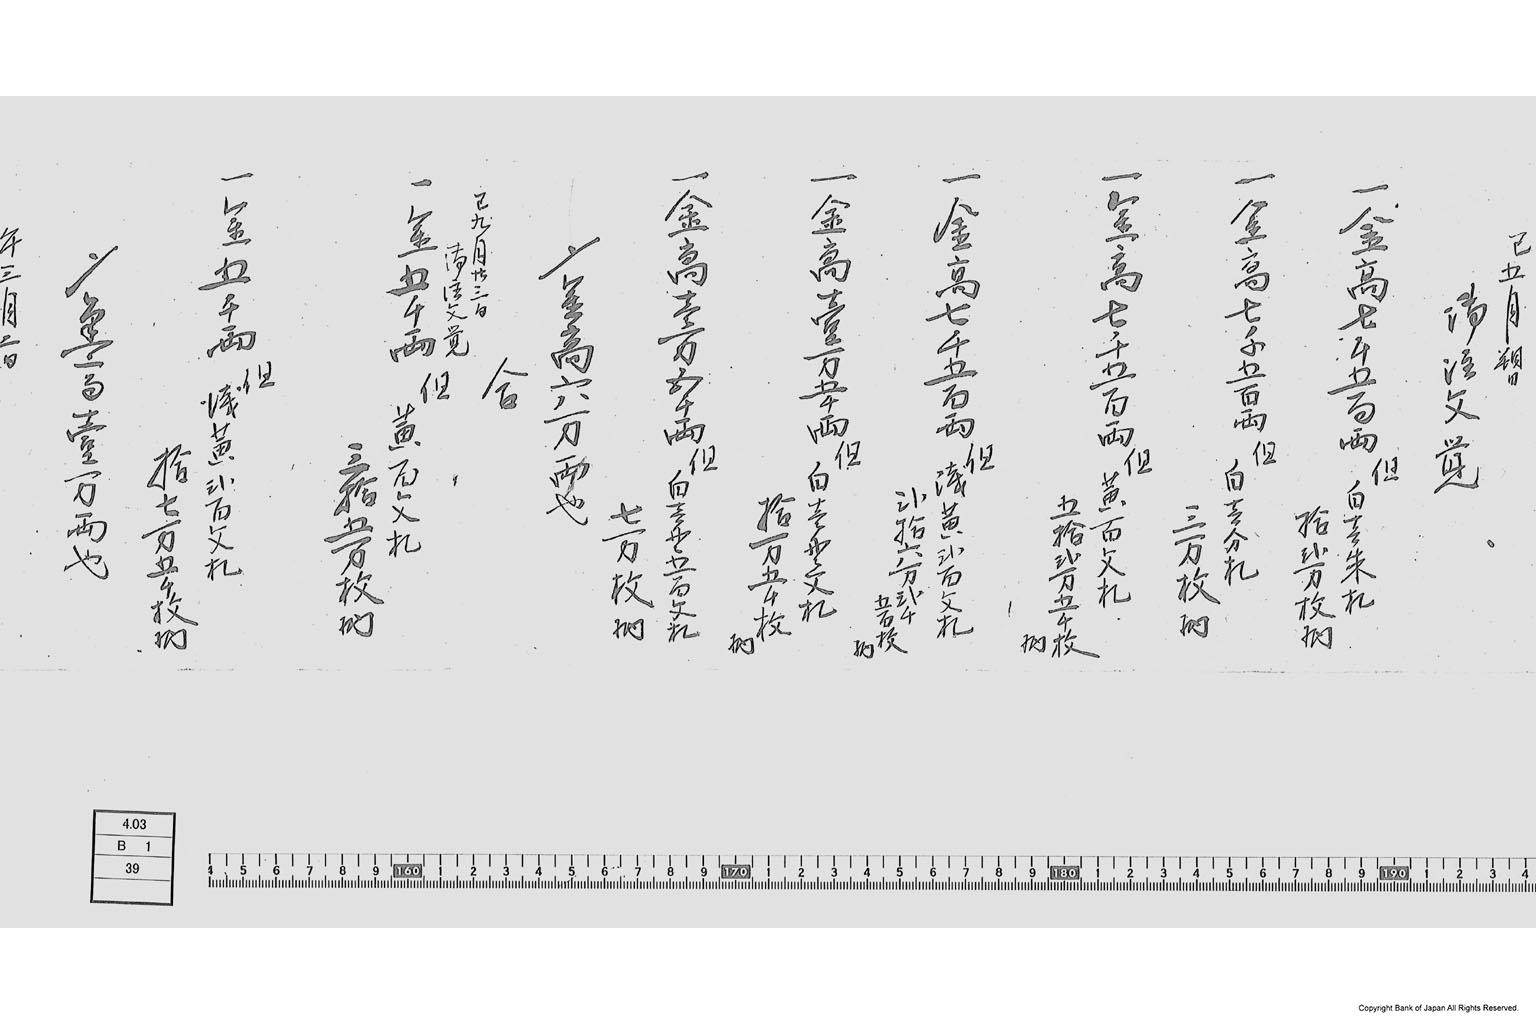 巳五月朔日
御注文覚
一金高七千五百両 但 白壱朱札
拾弐万枚
一金高七千五百両 但 白壱分札
三万枚
一金高七千五百両 但 黄百文札
五拾弐万五千枚
一金高七千五百両 但 浅黄弐百文札
弐拾六万弐千
五百枚
一金高壱万五千両 但 白壱貫文札
拾万五千枚
一金高壱万五千両 但 白壱貫五百文札
七万枚
〆金高六万両也
合
巳九月廿三日
御注文覚
一金五千両 但 黄百文札
三拾五万枚
一金五千両 但 浅黄弐百文札
拾七万五千枚
〆金高壱万両也
午三月二日
4.03
B 1
39
4 5 6 7 8 9 160 1 2 3 4 5 6 7 8 9 170 1 2 3 4 5 6 7 8 9 180 1 2 3 4 5 6 7 8 9 190 1 2 3 4
Copyright Bank of Japan All Rights Reserved.